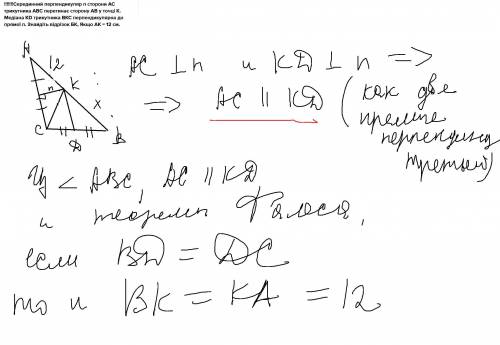 !!!!!!Серединний перпендикуляр n сторони АС
трикутника ABC перетинає сторону AB у точці K.
Медіана KD трикутника BKC перпендикулярна до
прямої n. Знайдіть відрізок БК, Якщо АК = 12 см.
A 12
n K x
C D B
AC ⊥ n и KD ⊥ n =>
=> AC || KD (как две
прямые
перпендик
третьей)
Из < ABC, AC || KD
и теоремы Фалеса,
если BD = DC
то и BK = KA = 12